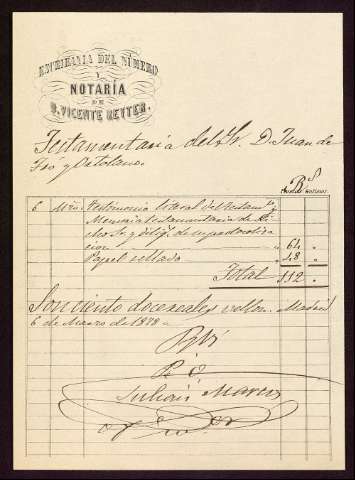 ESCRIBANIA DEL NÚMERO
Y
NOTARÍA
DE
D. VICENTE REYTER.
Testamentaría del Sr. D. Juan de
y Ortolano.
Rs
6 Mzo. Testimonio literal del testamto. y
Memoria testamentaria de di-
cho Sr. y diligs. de su protocoliza-
cion " 64 "
Papel sellado " 48 "
Total 112 "
Son ciento doce reales vellon. Madrid
6 de Marzo de 1878.
Rbí
P. O.
Julian Marcos